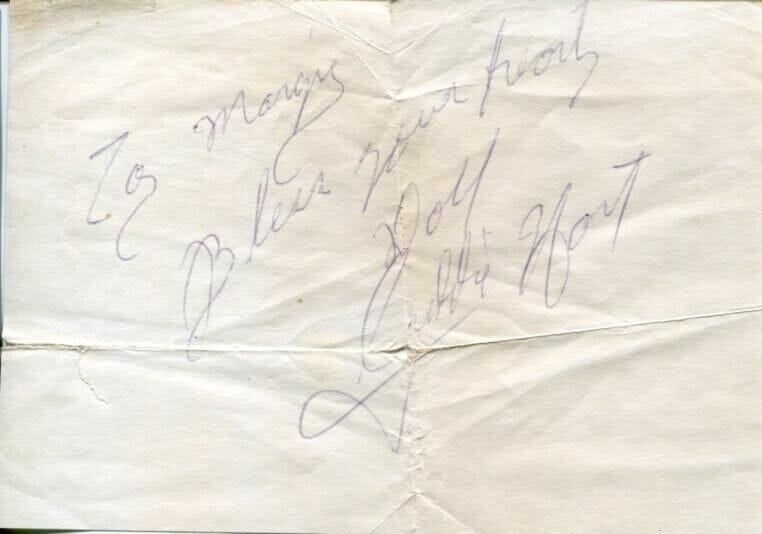 To Margie
Bless your heart
Doll
Freddie Hart